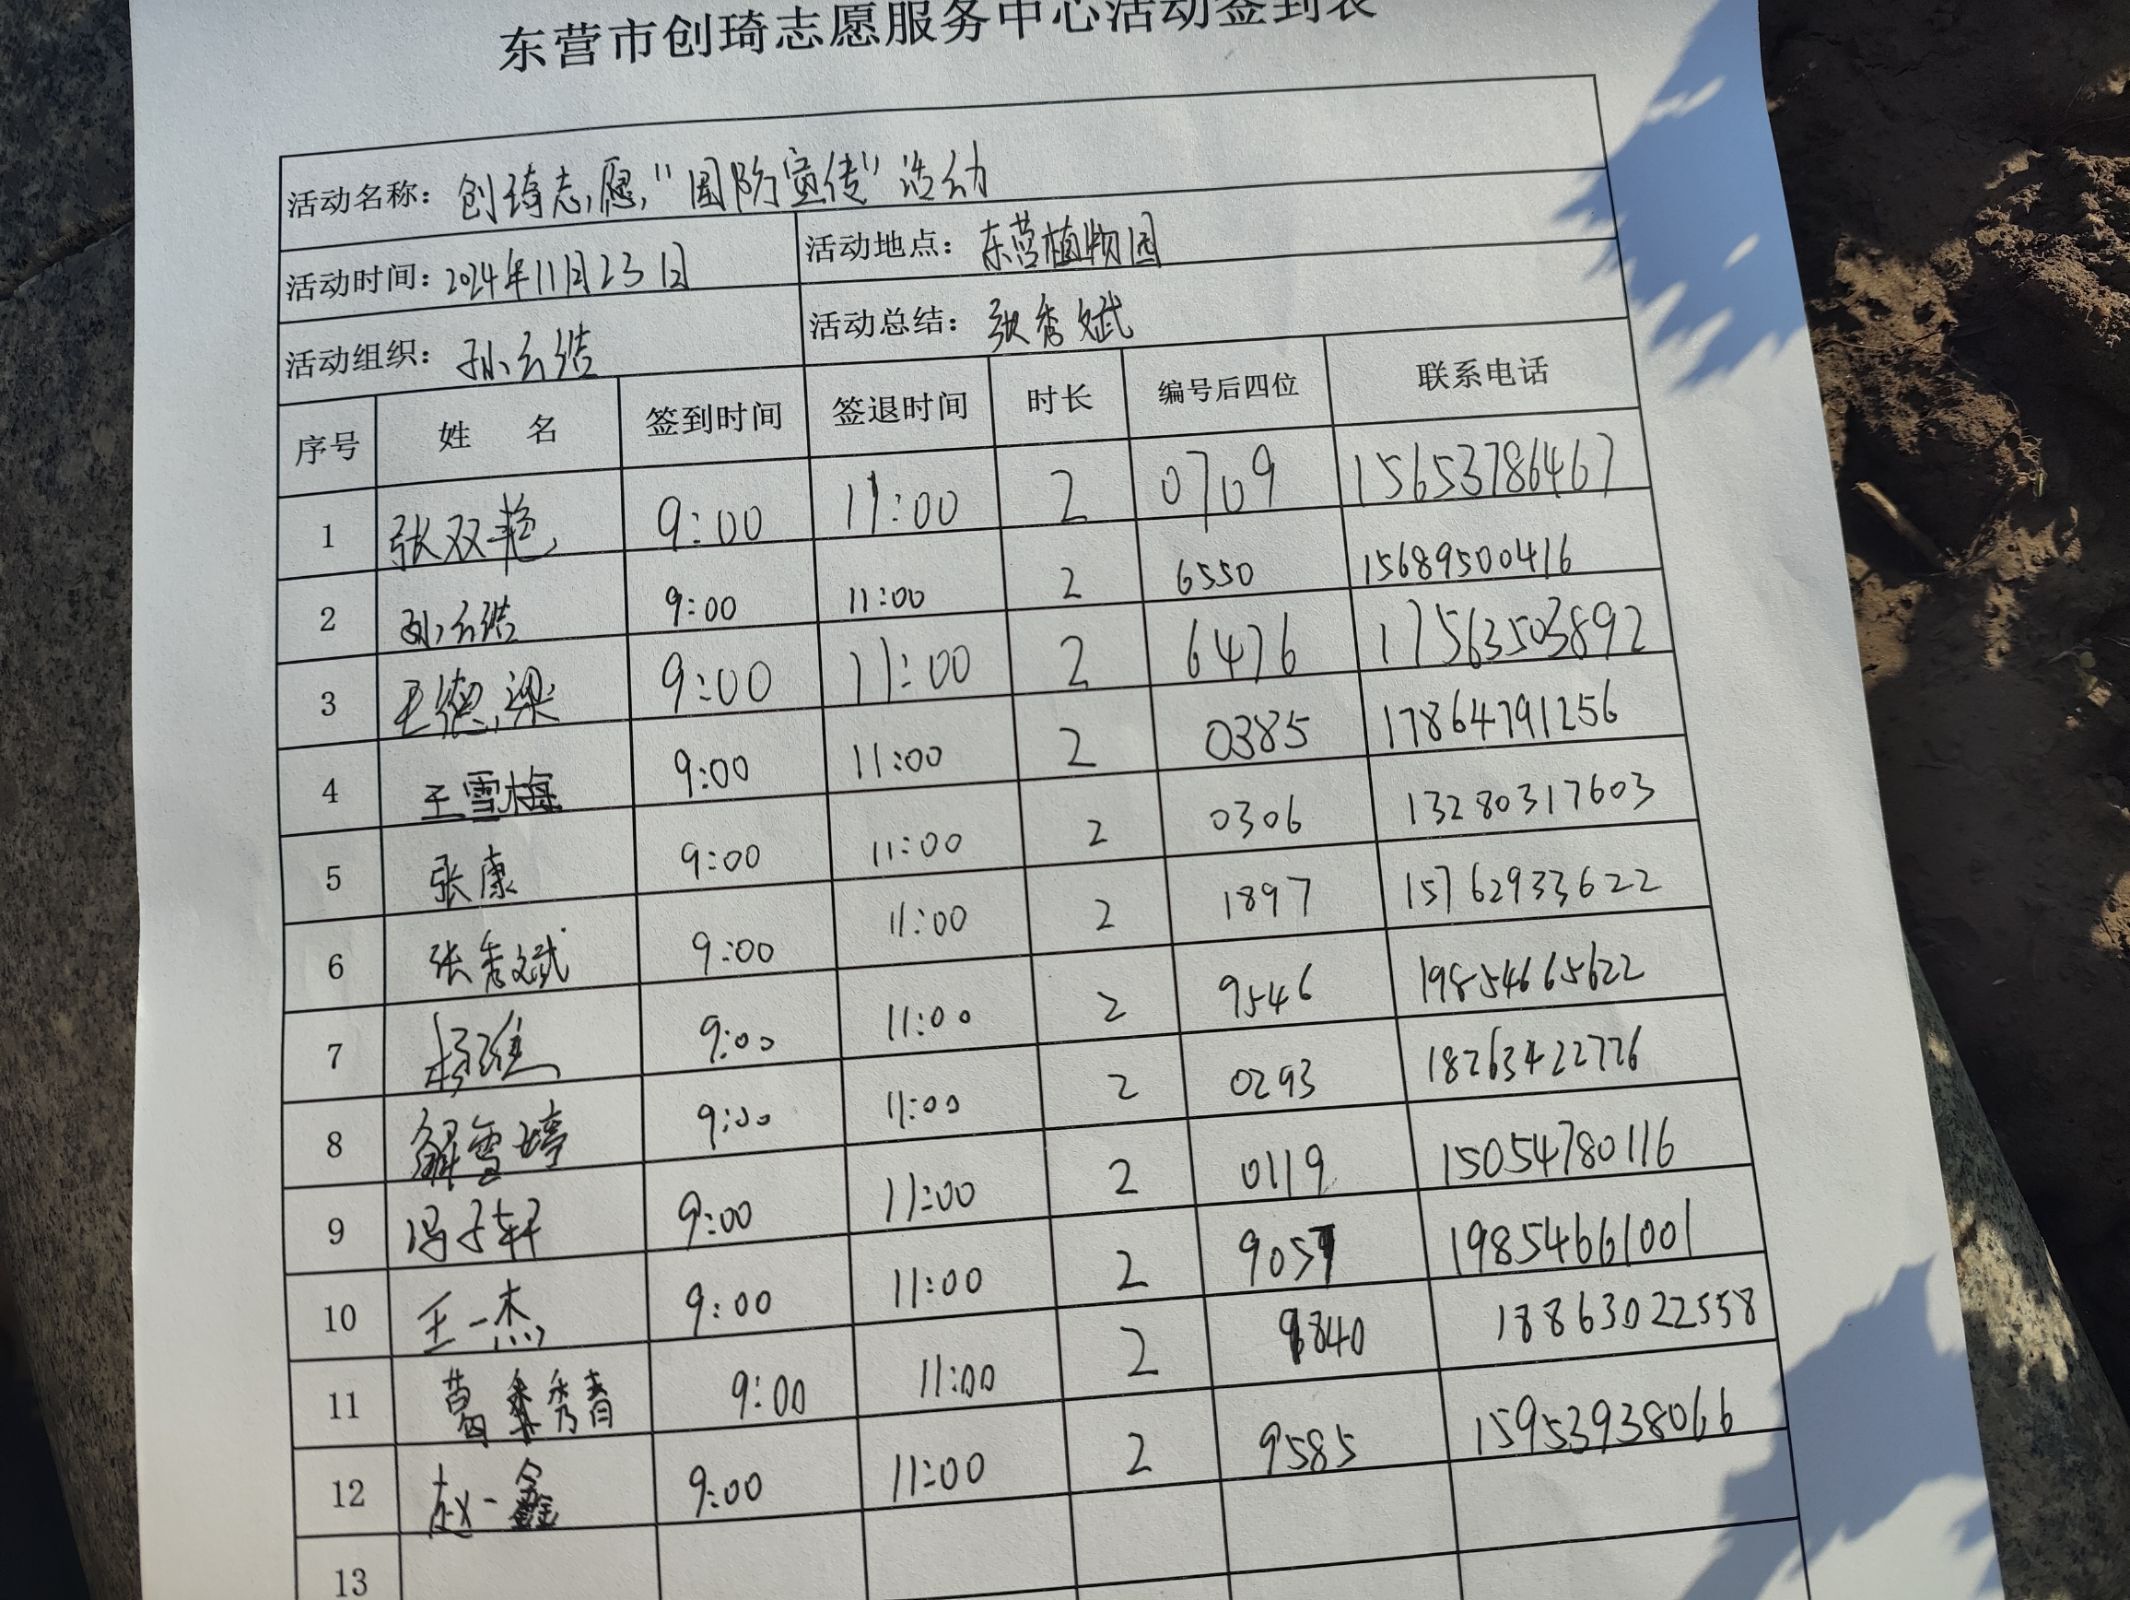 东营市创琦志愿服务中心活动签到表
活动名称：创琦志愿“国防宣传”活动
活动时间：2024年11月23日 活动地点：东营植物园
活动组织：孙云浩 活动总结：张秀斌
序号 姓 名 签到时间 签退时间 时长 编号后四位 联系电话
1 张双艳 9:00 11:00 2 0709 15653786467
2 孙云浩 9:00 11:00 2 6550 15689500416
3 王德梁 9:00 11:00 2 6476 17563503892
4 王雪梅 9:00 11:00 2 0385 17864791256
5 张康 9:00 11:00 2 0306 13280317603
6 张秀斌 9:00 11:00 2 1897 15762933622
7 9:00 11:00 2 9546 19854665622
8 解雪婷 9:00 11:00 2 0293 18263422726
9 冯子轩 9:00 11:00 2 0119 15054780116
10 王一杰 9:00 11:00 2 19854661001
11 葛秀青 9:00 11:00 2 18863022558
12 赵一鑫 9:00 11:00 2 9585 15953938066
13